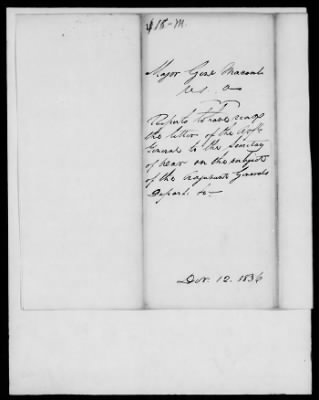 418-M.
Major Genl Macomb
Reports to have read
the letter of the Adjt
General to the Secretary
of War on the subject
of the Adjutant Generals
Departt &c
Dec. 12. 1836